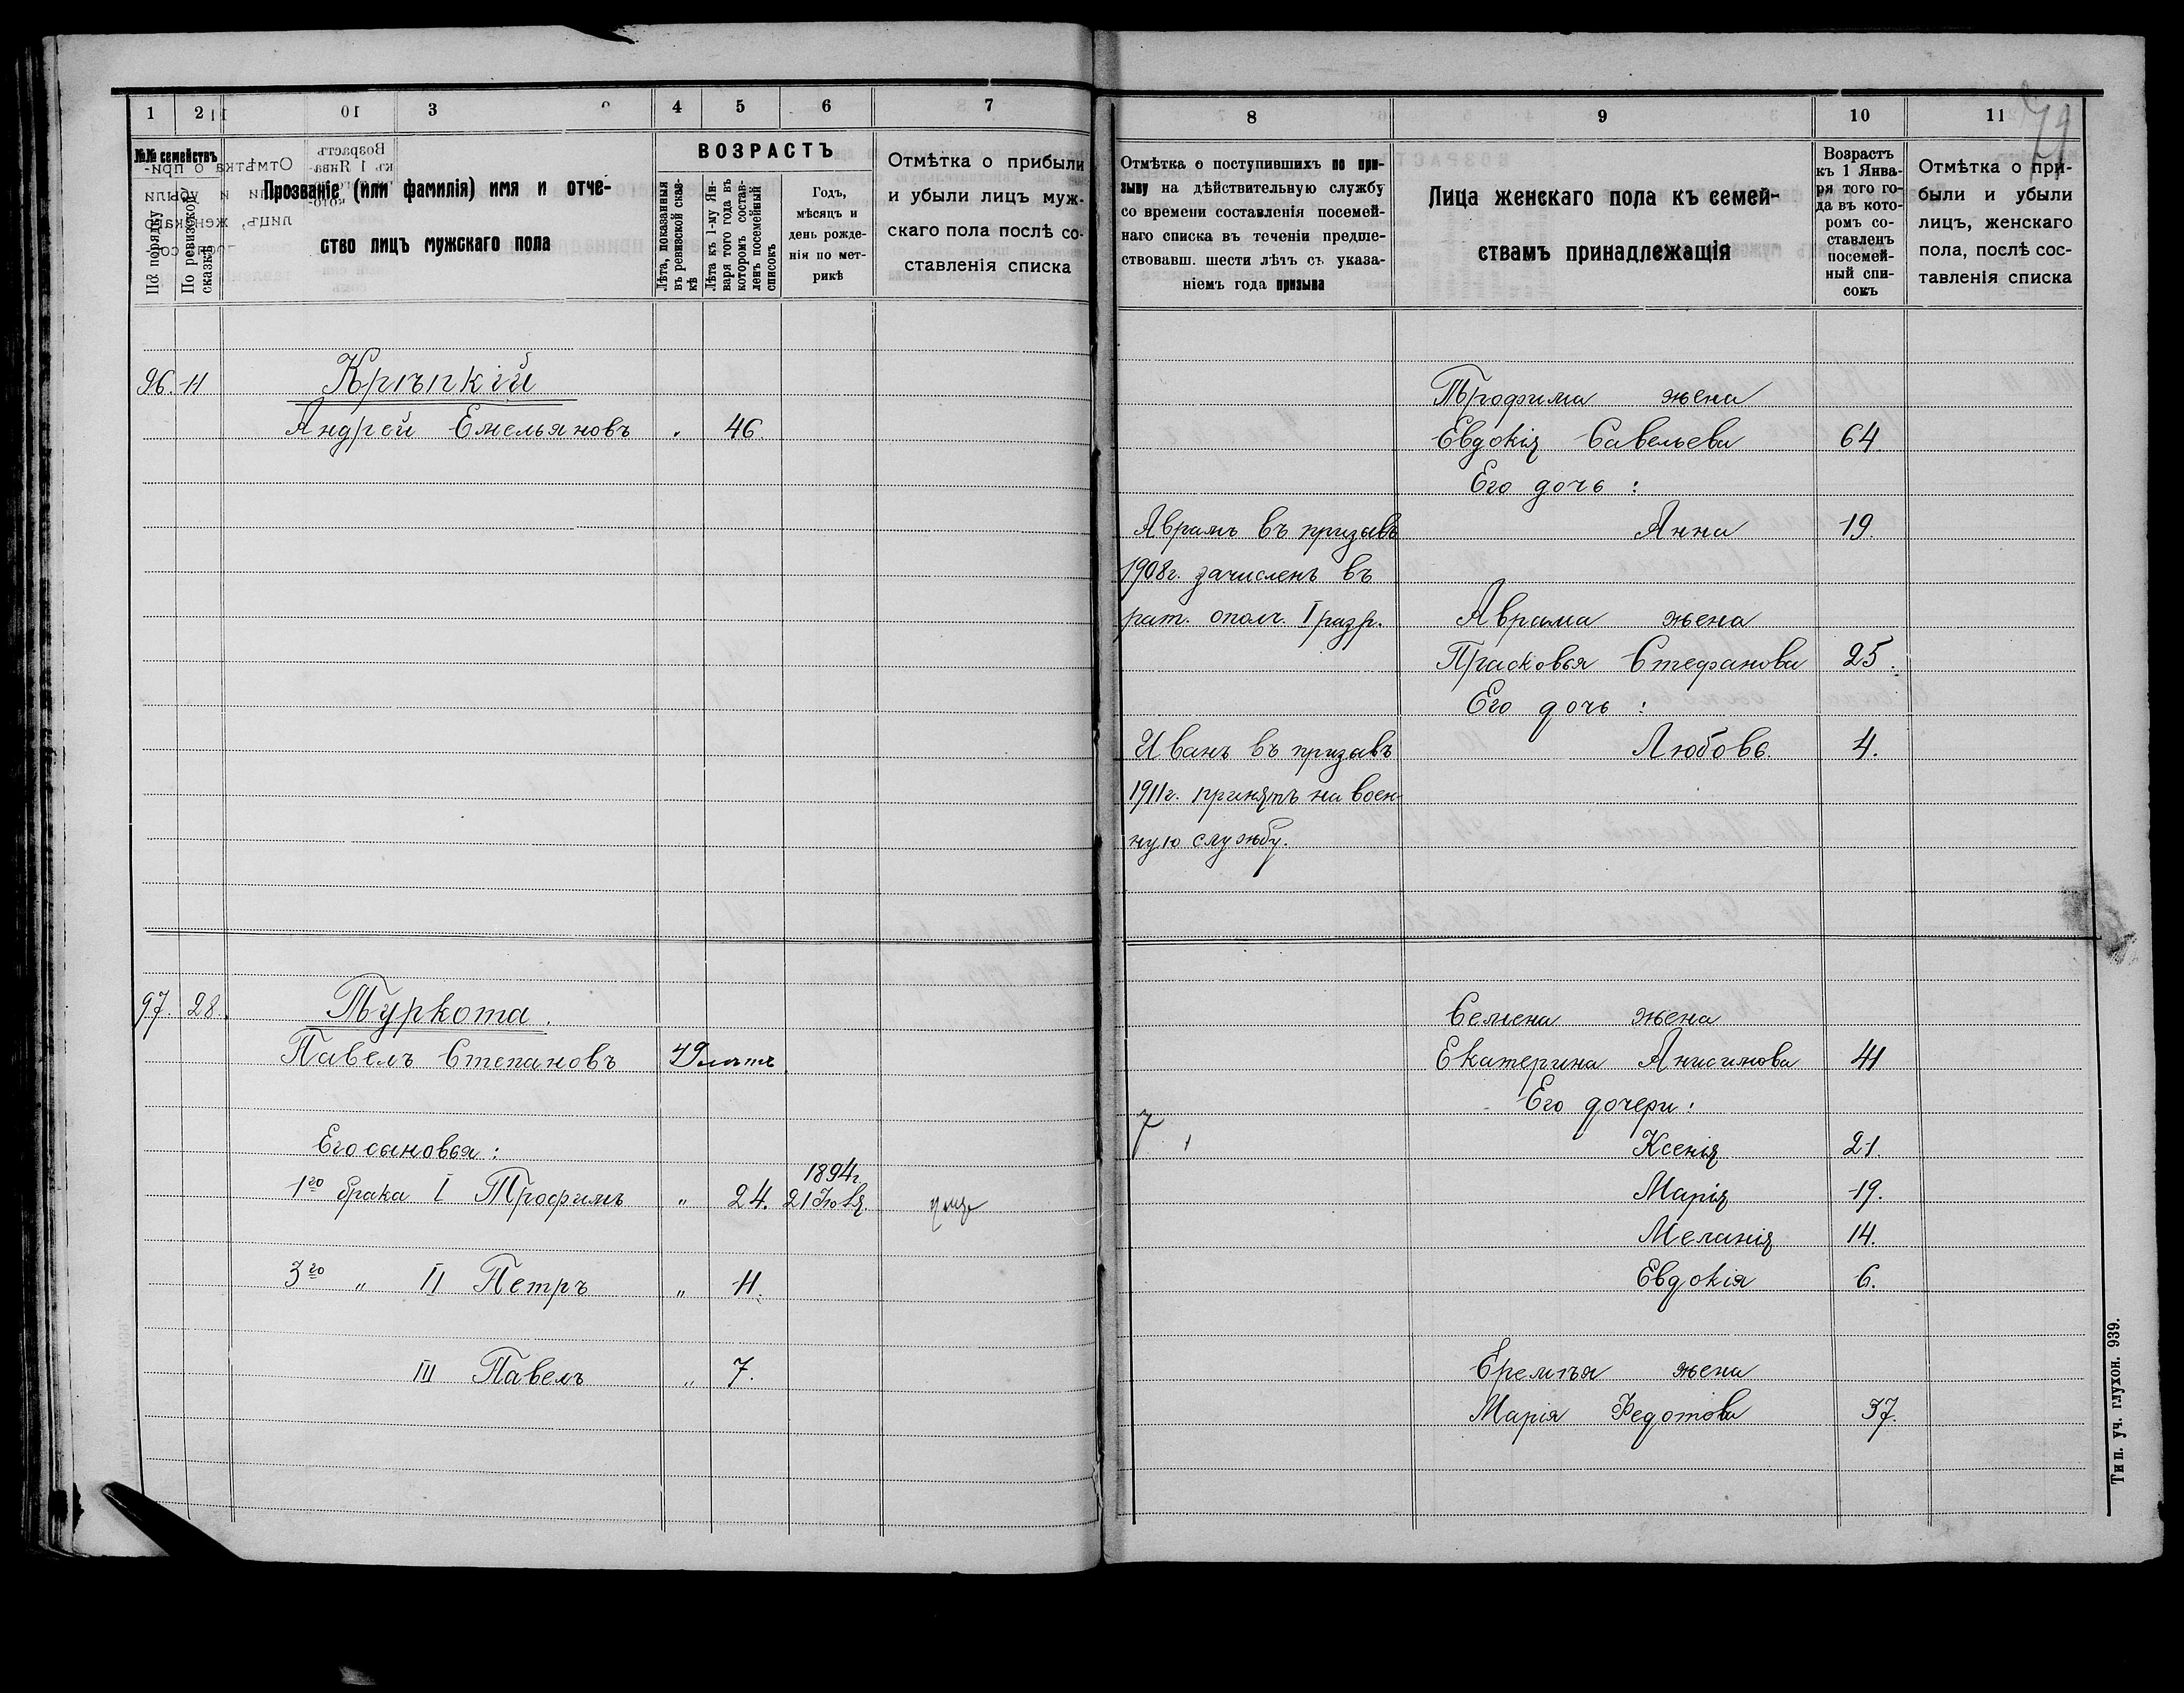 1 2 3 4 5 6 7
№№ семействъ
По порядку
По ревизской сказкѣ
Прозваніе (или фамилія) имя и отче-
ство лицъ мужскаго пола
ВОЗРАСТЪ
Лѣта, показанныя въ ревизской сказ-кѣ
Лѣта къ 1-му Ян-варя того года въ которомъ состав-ленъ посемейный списокъ
Годъ,
мѣсяцъ и
день рожде-
нія по мет-
рикѣ
Отмѣтка о прибыли
и убыли лицъ муж-
скаго пола послѣ со-
ставленія списка
96. 11 Крѣпкій
Андрей Емельяновъ 46.
97. 28. Туркота.
Павелъ Степановъ 49 лѣтъ.
Его сыновья:
1894г.
1го брака I Трофимъ „ 24. 21 Іюля
3го „ II Петръ „ 11.
III Павелъ „ 7.
8 9 10 11
Отмѣтка о поступившихъ по при-
зыву на дѣйствительную службу
со времени составленія посемей-
наго списка въ теченіи предше-
ствовавш. шести лѣтъ съ указа-
ніемъ года призыва
Лица женскаго пола къ семей-
ствамъ принадлежащія
Возрастъ
къ 1 Янва-
ря того го-
да въ кото-
ромъ со-
ставленъ
посемей-
ный спи-
сокъ
Отмѣтка о при-
были и убыли
лицъ, женскаго
пола, послѣ сос-
тавленія списка
Трофима жена
Евдокія Савельева 64
Его дочь:
Аврамъ въ призывъ Анна 19.
1908г. зачисленъ въ
рат. ополч. I разр. Аврама жена
Прасковья Стефанова 25.
Его дочь:
Иванъ въ призывъ Любовь. 4.
1911г. принятъ на воен-
ную службу.
Семена жена
Екатерина Анисимова 41
Его дочери:
7
Ксенія 21.
Марія 19.
Меланія 14.
Евдокія 6.
Еремѣя жена
Марія Федотова 37.
Тип. уч. глухон. 939.